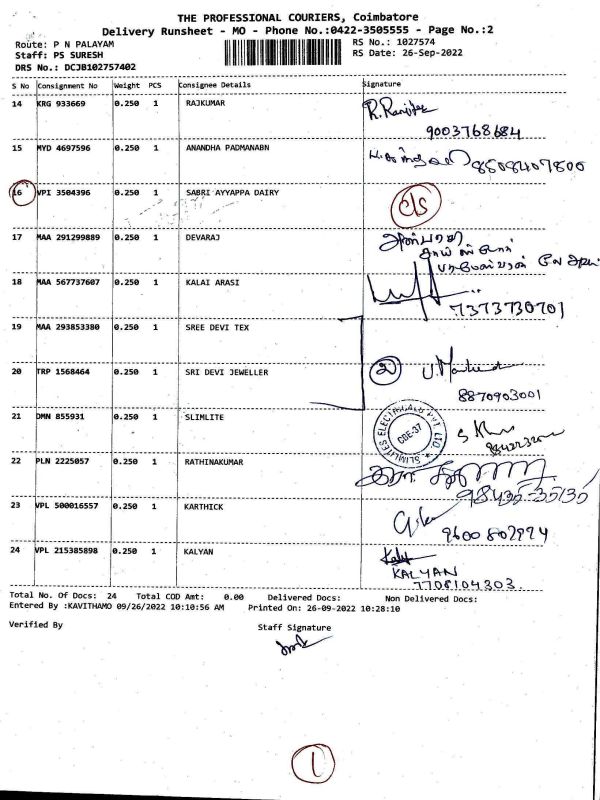 THE PROFESSIONAL COURIERS, Coimbatore
Delivery Runsheet - MO - Phone No.:0422-3505555 - Page No.:2
Route: P N PALAYAM
Staff: PS SURESH
DRS No.: DCJB102757402
RS No.: 1027574
RS Date: 26-Sep-2022
S No Consignment No Weight PCS Consignee Details Signature
14 KRG 933669 0.250 1 RAJKUMAR
9003768684
15 MYD 4697596 0.250 1 ANANDHA PADMANABN
8508407800
16 VPI 3504396 0.250 1 SABRI AYYAPPA DAIRY
17 MAA 291299889 0.250 1 DEVARAJ
18 MAA 567737607 0.250 1 KALAI ARASI
7373730701
19 MAA 293853380 0.250 1 SREE DEVI TEX
20 TRP 1568464 0.250 1 SRI DEVI JEWELLER
8870903001
21 DMN 855931 0.250 1 SLIMLITE
CBE-37
22 PLN 2225057 0.250 1 RATHINAKUMAR
23 VPL 500016557 0.250 1 KARTHICK
24 VPL 215385898 0.250 1 KALYAN
KALYAN
7708104303
Total No. Of Docs: 24 Total COD Amt: 0.00 Delivered Docs: Non Delivered Docs:
Entered By :KAVITHAMO 09/26/2022 10:10:56 AM Printed On: 26-09-2022 10:28:10
Verified By Staff Signature
1